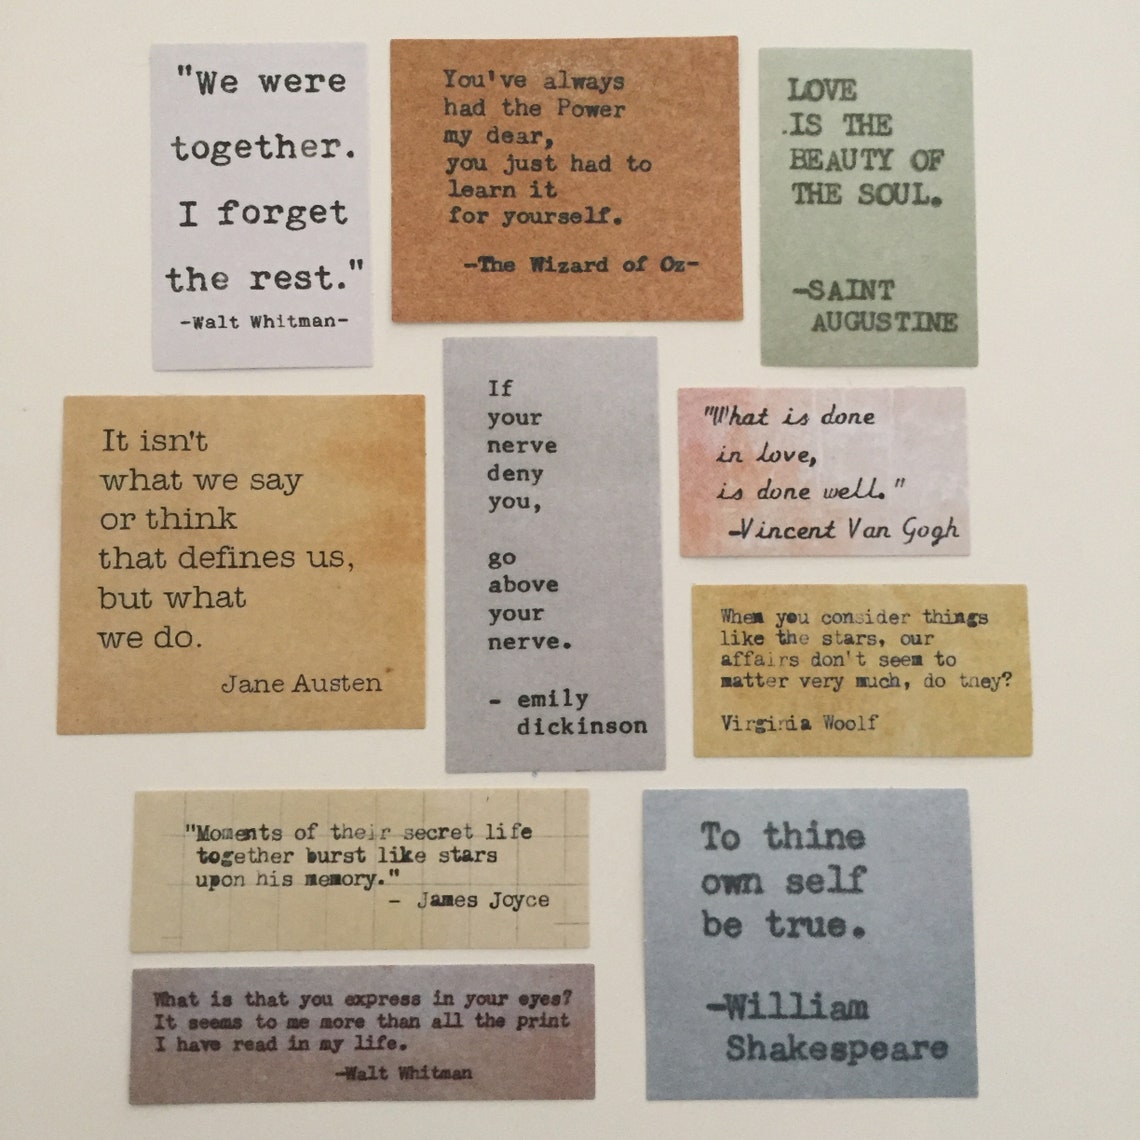 "We were
together.
I forget
the rest."
-Walt Whitman-
You've always
had the Power
my dear,
you just had to
learn it
for yourself.
-The Wizard of Oz-
LOVE
.IS THE
BEAUTY OF
THE SOUL.
-SAINT
AUGUSTINE
It isn't
what we say
or think
that defines us,
but what
we do.
Jane Austen
If
your
nerve
deny
you,
go
above
your
nerve.
- emily
dickinson
"What is done
in love,
is done well."
-Vincent Van Gogh
When you consider things
like the stars, our
affairs don't seem to
matter very much, do they?
Virginia Woolf
"Moments of their secret life
together burst like stars
upon his memory."
- James Joyce
What is that you express in your eyes?
It seems to me more than all the print
I have read in my life.
-Walt Whitman
To thine
own self
be true.
-William
Shakespeare